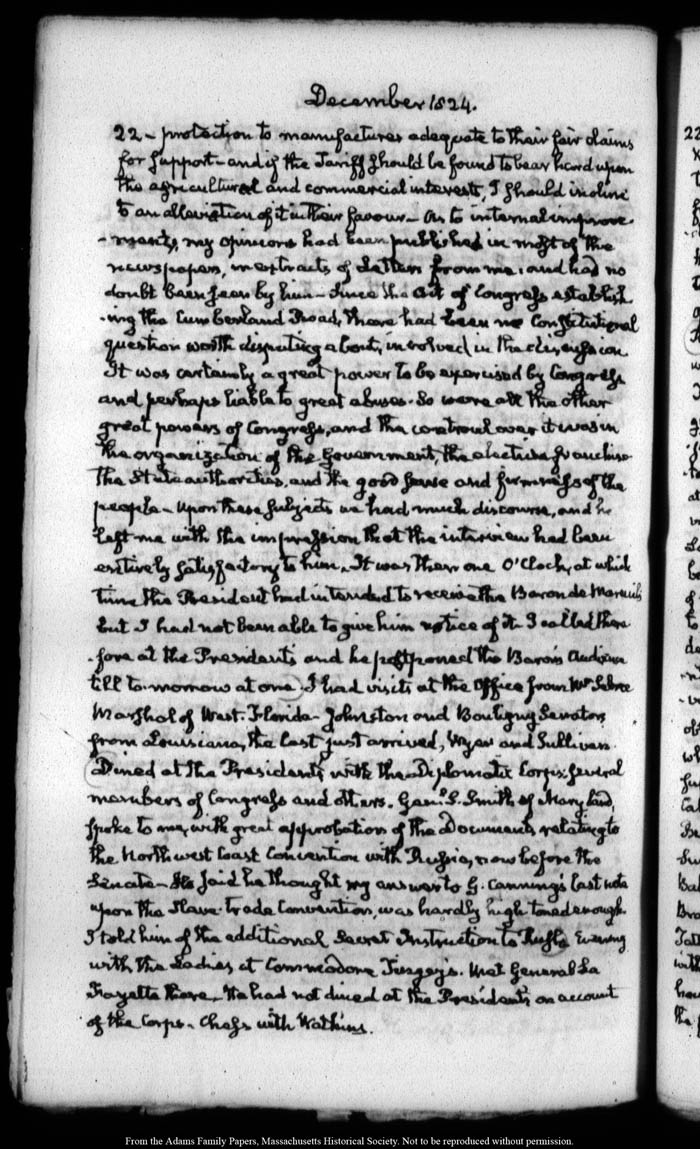 December 1824.
22 - protection to manufactures adequate to their fair claims
for support - and if the Tariff should be found to bear hard upon
the agricultural and commercial interests, I should incline
to an alleviation of it in their favour - As to internal improve
-ments, my opinions had been published in most of the
newspapers, in extracts of Letters from me: and had no
doubt been seen by him - Since the Act of Congress establish
-ing the Cumberland Road, there had been no Constitutional
question worth disputing about, involved in the discussion
It was certainly a great power to be exercised by Congress
and perhaps liable to great abuses. So were all the other
great powers of Congress, and the controul over it was in
the organization of the Government, the elective franchise
the State authorities, and the good sense and firmness of the
people - Upon these subjects we had much discourse, and he
left me with the impression that the interview had been
entirely satisfactory to him. It was then one O'Clock, at which
time the President had intended to receive the Baron de Mareuil,
but I had not been able to give him notice of it. I called there
-fore at the President's and he postponed the Baron's Audience
till to-morrow at one. I had visits at the Office from Mr Sebree
Marshal of West-Florida - Johnston and Bouligny Senators
from Louisiana, the last just arrived, Wyer and Sullivan.
Dined at the President's with the Diplomatic Corps, several
members of Congress and others. Genl. S. Smith of Maryland,
spoke to me, with great approbation of the Documents relating to
the North west Coast Convention with Russia, now before the
Senate - He said he thought my answer to G. Canning's last note
upon the Slave-trade Convention, was hardly high toned enough.
I told him of the additional Secret Instruction to Rush. Evening
with the Ladies at Commodore Tingey's. Met General La
Fayette there. He had not dined at the President's on account
of the Corps - Chess with Watkins.
From the Adams Family Papers, Massachusetts Historical Society. Not to be reproduced without permission.